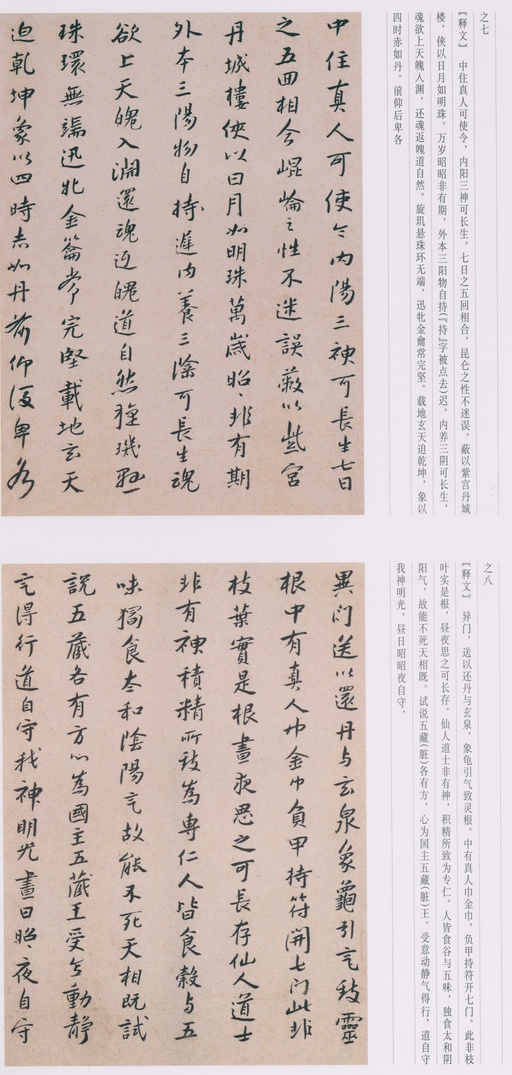 之七
【释文】 中住真人可使令，内阳三神可长生。七日之五回相合，昆仑之性不迷误。蔽以紫宫丹城
楼，侠以日月如明珠。万岁昭昭非有期，外本三阳物自持（『持』字被点去）迟。内养三阴可长生，
魂欲上天魄入渊，还魂返魄道自然。旋玑悬珠环无端，迅牝金龠常完坚。载地玄天迫乾坤，象以
四时赤如丹。前仰后卑各
中住真人可使令内陽三神可長生七日
之五回相合崐崘之性不迷誤蔽以紫宮
丹城樓俠以日月如明珠萬歲昭〻非有期
外本三陽物自持遲内養三陰可長生魂
欲上天魄入淵還魂返魄道自然旋璣懸
珠環無端迅牝金籥常完堅載地玄天
迫乾坤象以四時赤如丹前仰後卑各
之八
【释文】 异门，送以还丹与玄泉，象龟引气致灵根。中有真人巾金巾，负甲持符开七门。此非枝
叶实是根，昼夜思之可长存。仙人道士非有神，积精所致为专仁。人皆食谷与五味，独食太和阴
阳气，故能不死天相既。试说五藏（脏）各有方，心为国主五藏（脏）王。受意动静气得行，道自守
我神明光。昼日昭昭夜自守，
異門送以還丹与玄泉象龜引氣致靈
根中有真人巾金巾負甲持符開七門此非
枝葉實是根晝夜思之可長存仙人道士
非有神積精所致為專仁人皆食穀与五
味獨食太和陰陽氣故能不死天相既試
說五藏各有方心為國主五藏王受意動靜
氣得行道自守我神明光晝日昭〻夜自守